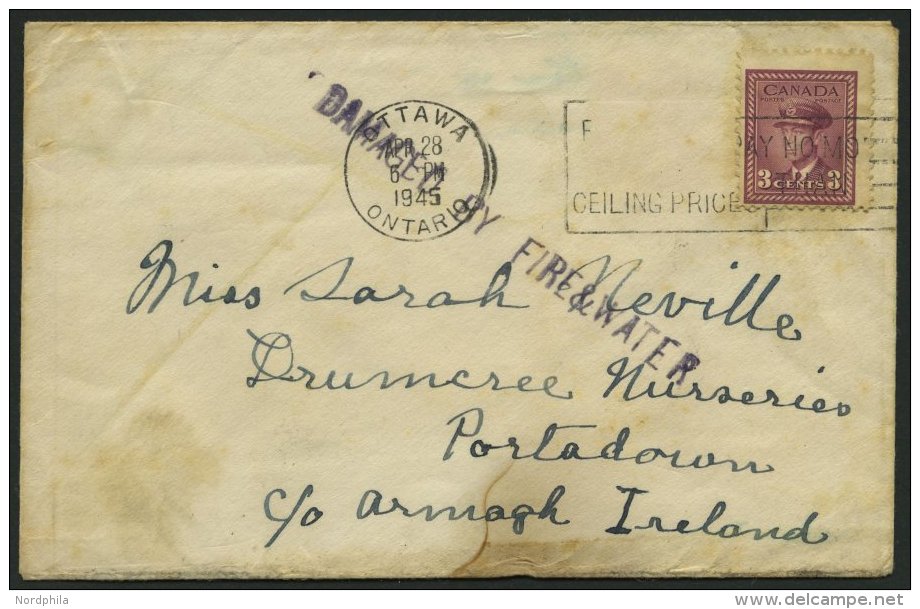 CANADA
POSTES POSTAGE
3 CENTS 3
OTTAWA
APR 28
6 PM
1945
ONTARIO
PAY NO MO
CEILING PRICES
DAMAGED BY FIRE & WATER
Miss Sarah Neville
Drumcree Nurseries
Portadown
c/o Armagh Ireland
Nordphila
delcampe.net